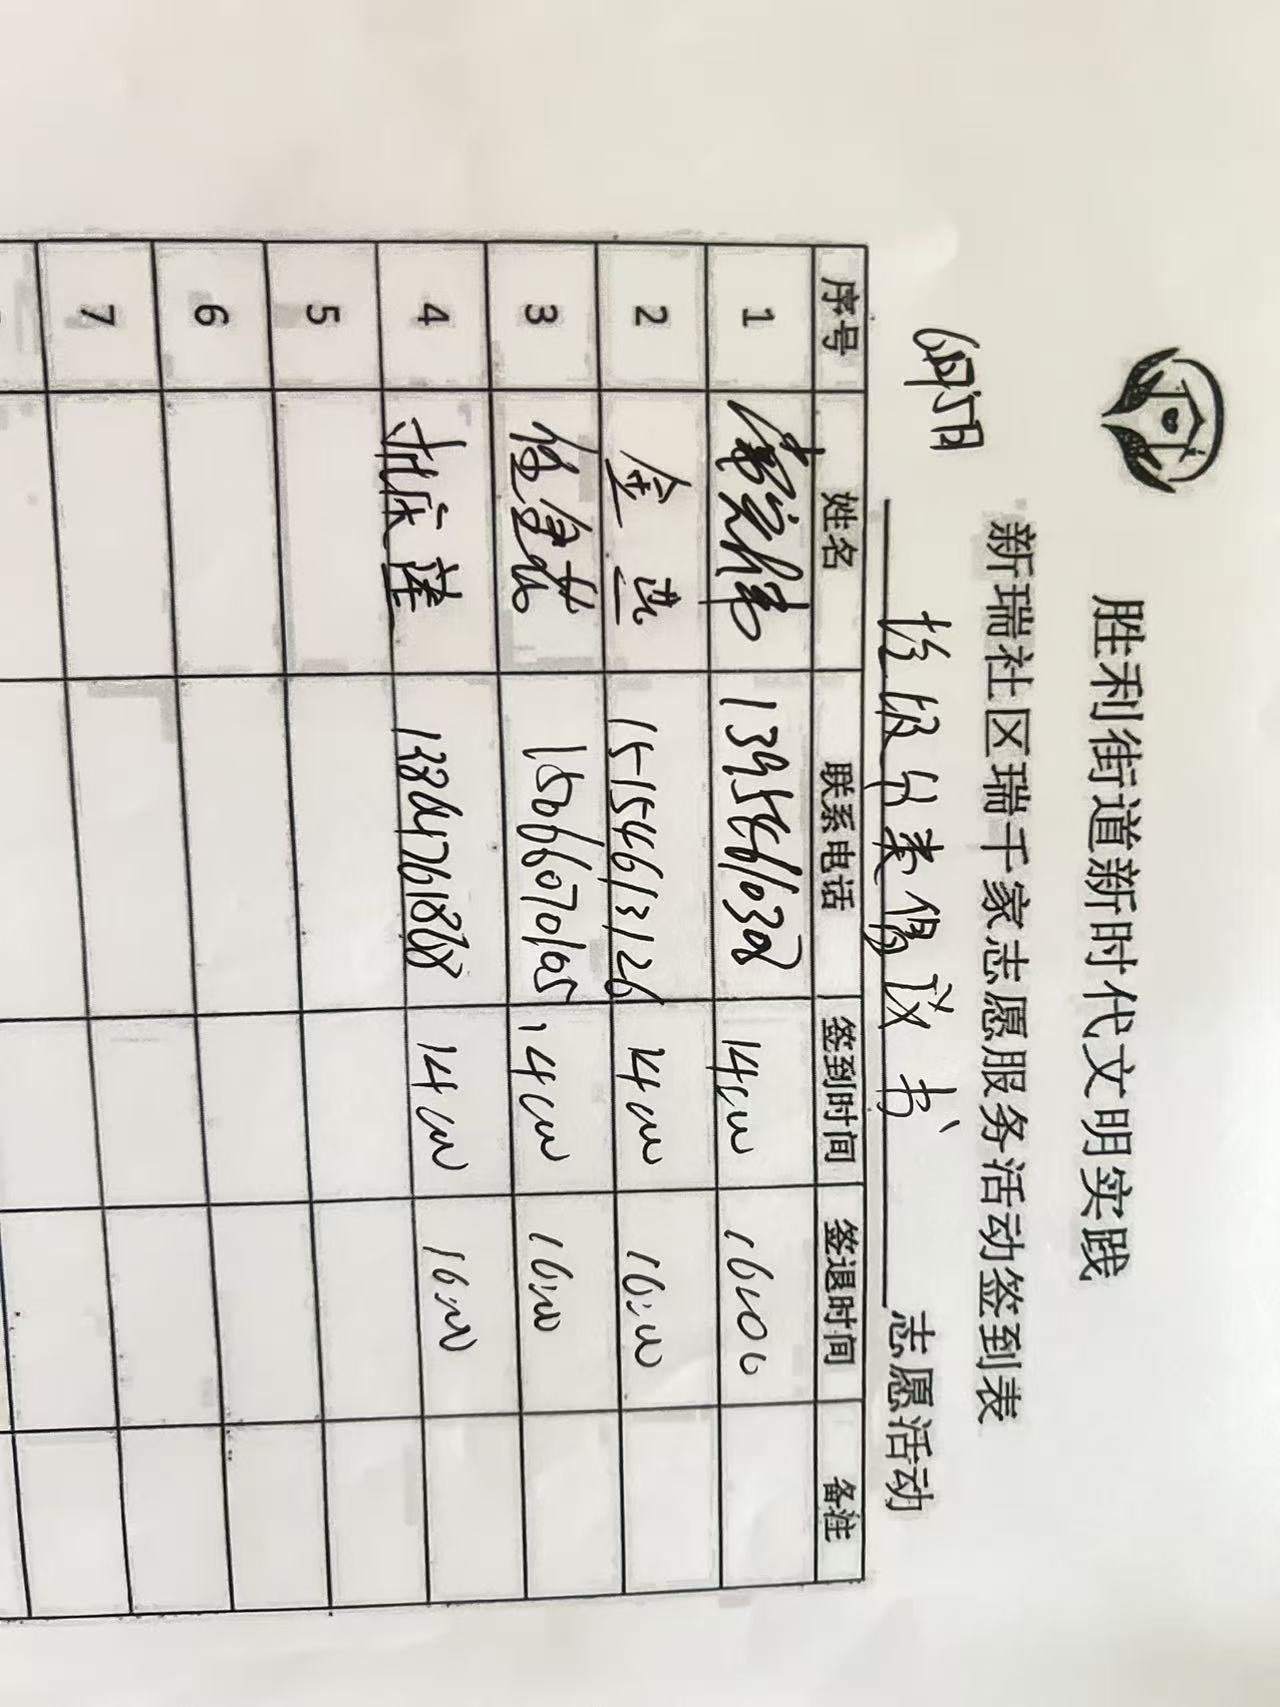 胜利街道新时代文明实践
新瑞社区瑞千家志愿服务活动签到表
6月5日 垃圾分类倡议书 志愿活动
序号 姓名 联系电话 签到时间 签退时间 备注
1 13954561038 14:00 16:00
2 金 15154613126 14:00 16:00
3 15066070105 14:00 16:00
4 14:00 16:00
5
6
7